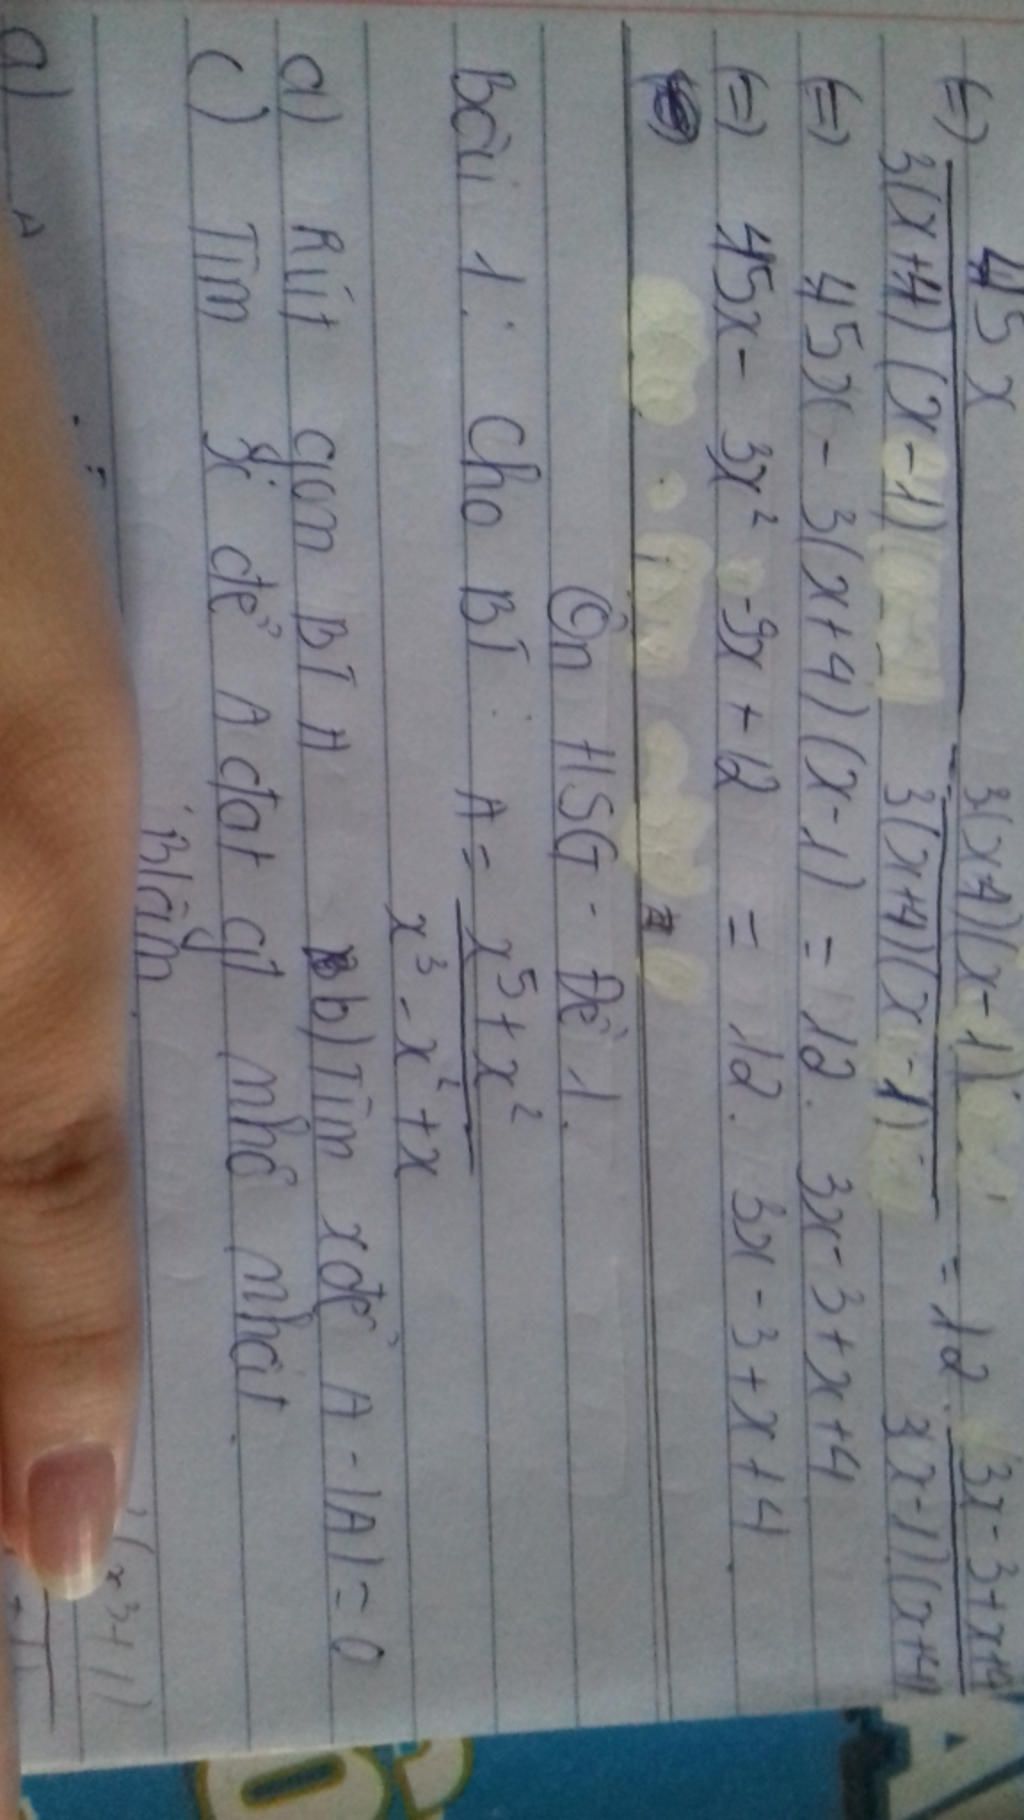 (=) 45x / 3(x+4)(x-1) - 3(x+4)(x-1) / 3(x+4)(x-1) = 12 . 3x-3+x+4 / 3x-1)(x+4)
(=) 45x - 3(x+4)(x-1) = 12 . 3x-3+x+4
(=) 45x - 3x² -9x + 12 = 12 . 3x-3+x+4 .
Ôn HSG - Đề 1.
Bài 1: Cho BT: A = x⁵ + x² / x³ - x² + x
a) Rút gọn BT A b) Tìm x để A - |A| = 0
c) Tìm x để A đạt gt nhỏ nhất.
Blàm
(x³+1)
a) A